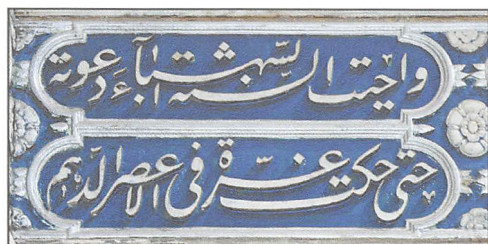 واحيت السنة الشهباء دعوته
حتى حكت غرّة فى الاعصر الدّهم